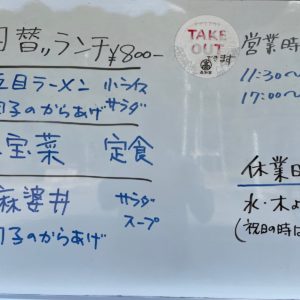 日替りランチ ¥800-
五目ラーメン 小ライス
団子のからあげ サラダ
八宝菜 定食
麻婆丼 サラダ
スープ
団子のからあげ
TAKE
OUT
できます
営業時
11:30〜
17:00〜
休業日
水・木よ
(祝日の時は